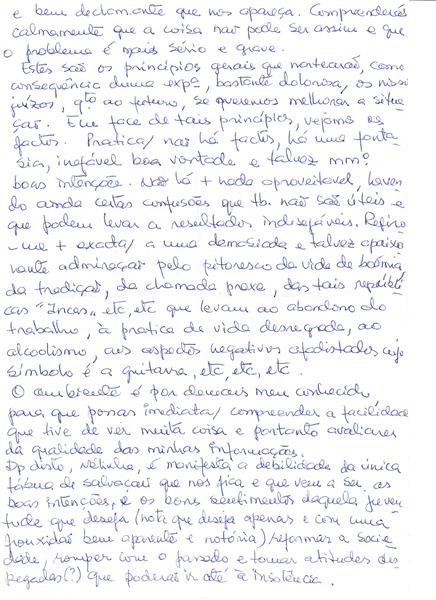 e bem declamante que nos apareça. Compreenderás
calmamente que a coisa não pode ser assim e que
o problema é mais sério e grave.
Estes são os princípios gerais que nortearão, como
consequência duma expª, bastante dolorosa, os nossos
juizos, qto ao futuro, se queremos melhorar a situa-
ção. Em face de tais princípios, vejamos os
factos. Pratica/ não há factos, há uma fanta-
sia, inefável boa vontade e talvez mmº
boas intenções. Não há + nada aproveitável, haven
do ainda certas confusões que tb. não são úteis e
que podem levar a resultados indesejáveis. Refiro-
-me + exacta/ a uma demasiada e talvez apaixo
nante admiração pelo pitoresco da vida de boémia,
da tradição, da chamada praxe, das tais republi
cas "Incas", etc, etc que levam ao abandono do
trabalho, à pratica de vida desregrada, ao
alcoolismo, aos aspectos negativos afadistados cujo
símbolo é a guitarra, etc, etc, etc.
O ambiente é por demais meu conhecido
para que possas imediata/ compreender a facilidade
que tive de ver muita coisa e portanto avaliares
da qualidade das minhas informações.
Dp disto, é manifesta a debilidade da única
tábua de salvação que nos fica e que vem a ser as
boas intenções, e os bons sentimentos daquela juven
tude que deseja (nota que deseja apenas e com uma
frouxidão bem aparente e notória) reformar a socie
dade, romper com o passado e tomar atitudes des
pegadas(?) que poderão ir até à insolência.